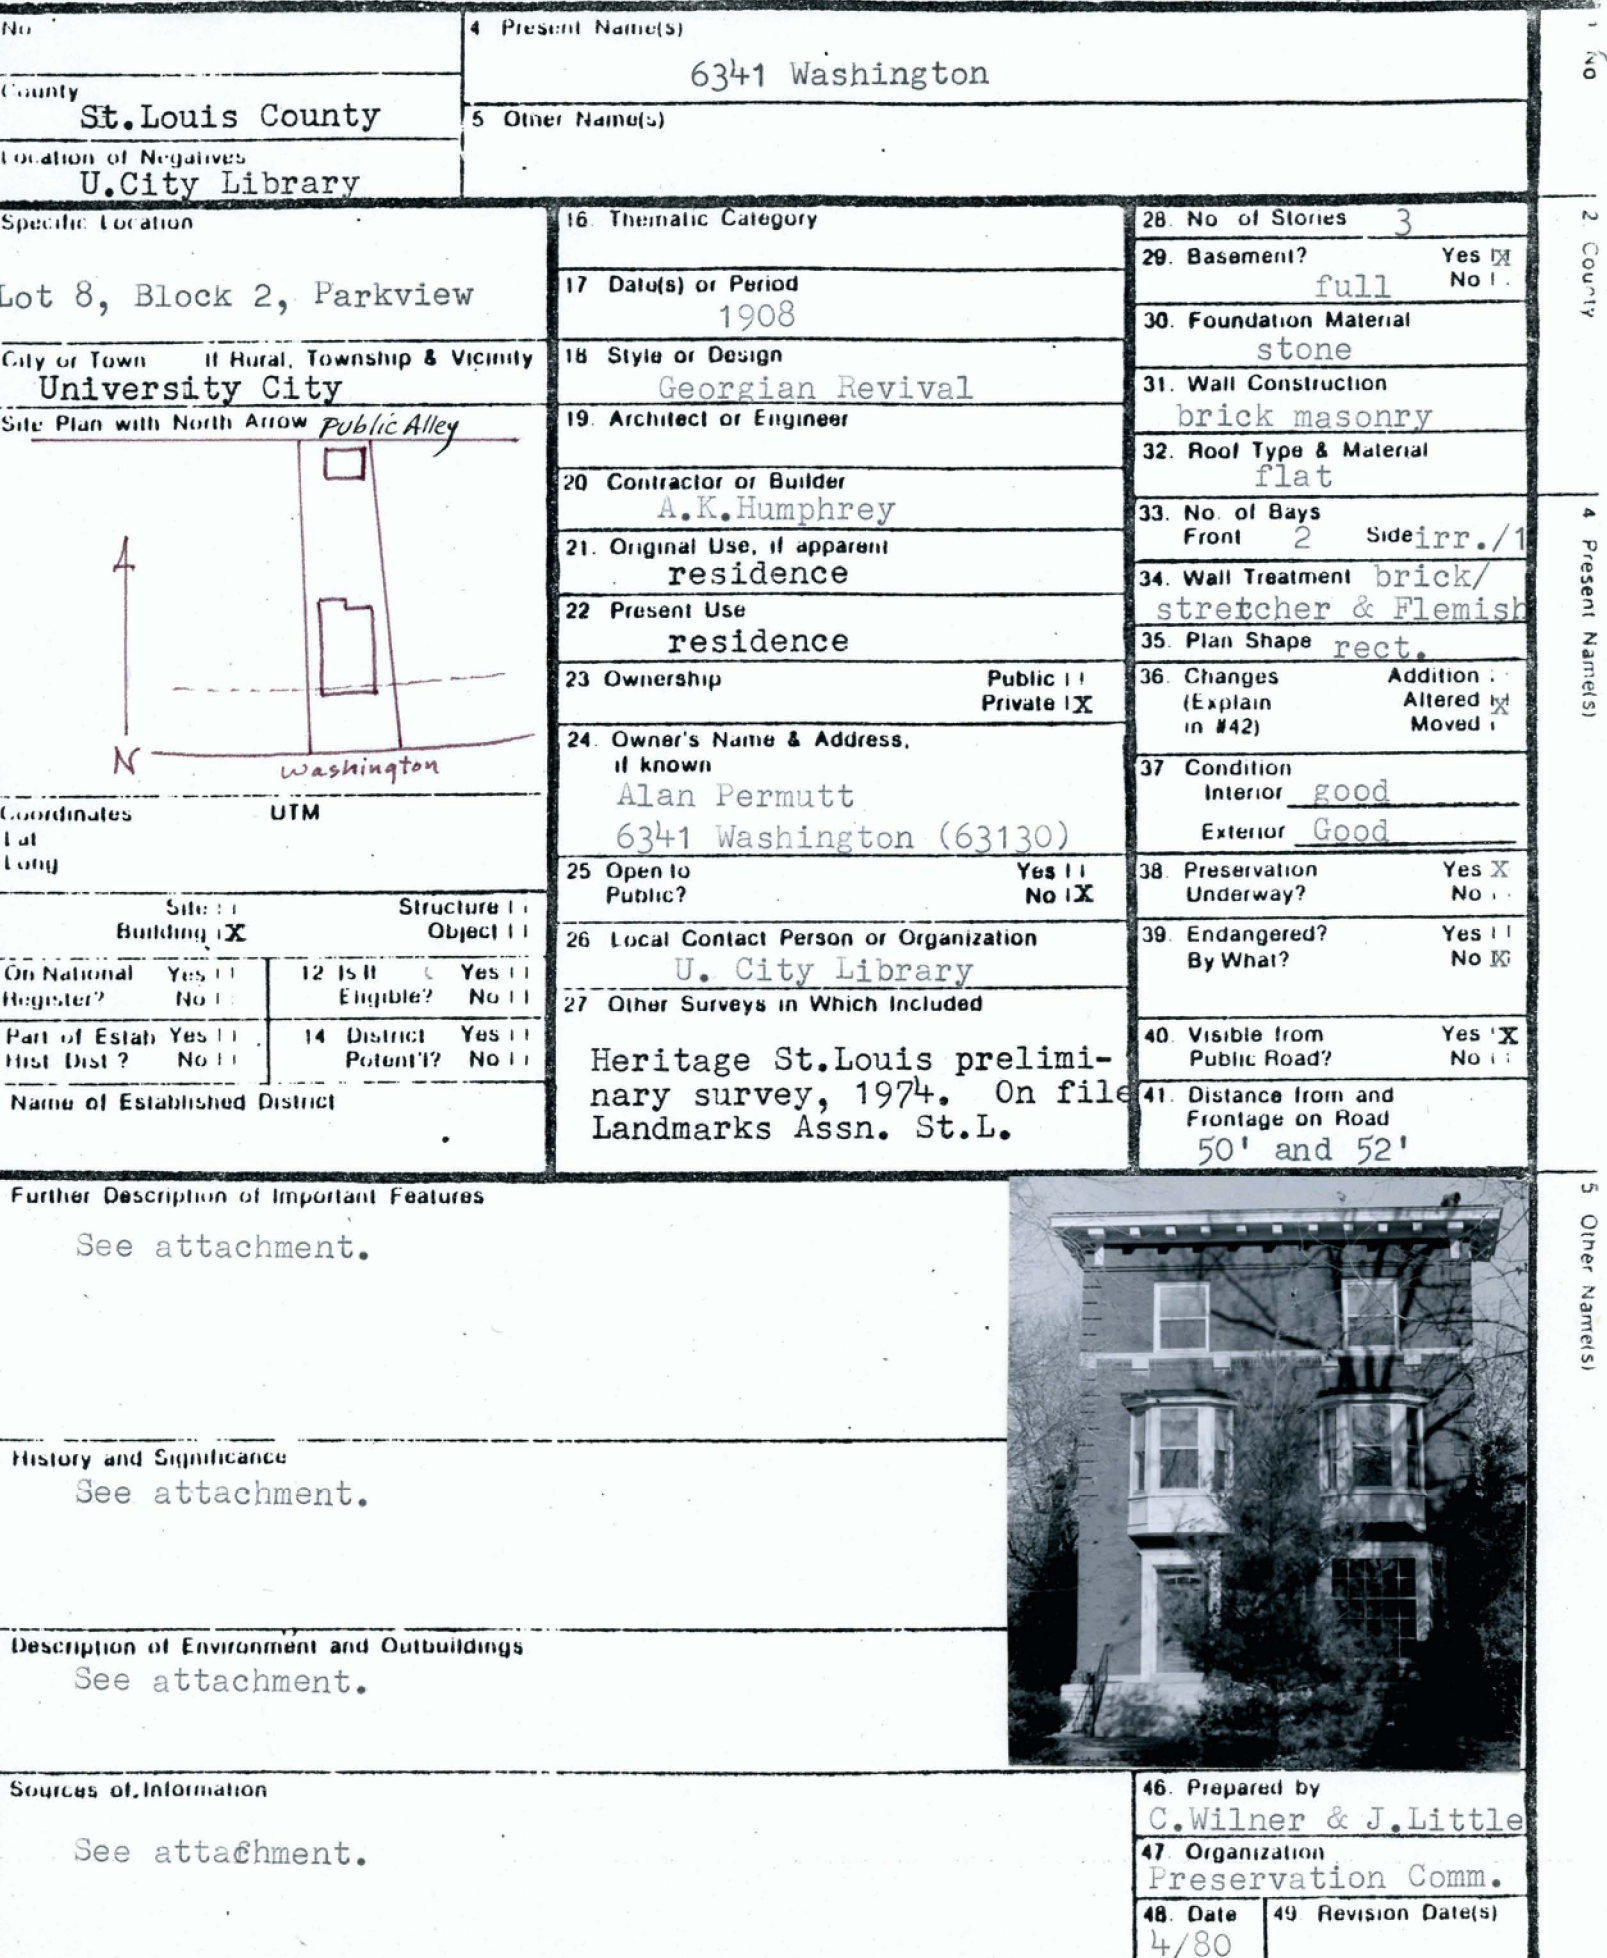 No
4 Present Name(s)
6341 Washington
County
St.Louis County
5 Other Name(s)
Location of Negatives
U.City Library
Specific Location
Lot 8, Block 2, Parkview
City or Town If Rural, Township & Vicinity
University City
Site Plan with North Arrow Public Alley
N
Washington
Coordinates UTM
Lat
Long
Site Structure
Building X Object
On National Register? Yes No
12 Is It Eligible? Yes No
Part of Estab Hist Dist? Yes No
14 District Potent'l? Yes No
Name of Established District
16. Thematic Category
17 Date(s) or Period
1908
18 Style or Design
Georgian Revival
19. Architect or Engineer
20 Contractor or Builder
A.K.Humphrey
21. Original Use, if apparent
residence
22 Present Use
residence
23 Ownership Public
Private X
24. Owner's Name & Address,
if known
Alan Permutt
6341 Washington (63130)
25 Open to Yes
Public? No X
26 Local Contact Person or Organization
U. City Library
27 Other Surveys in Which Included
Heritage St.Louis prelimi-
nary survey, 1974. On file
Landmarks Assn. St.L.
28. No of Stories 3
29. Basement? Yes X
full No
30. Foundation Material
stone
31. Wall Construction
brick masonry
32. Roof Type & Material
flat
33. No. of Bays
Front 2 Side irr./1
34. Wall Treatment brick/
stretcher & Flemish
35. Plan Shape rect.
36. Changes Addition
(Explain Altered X
in #42) Moved
37 Condition
Interior good
Exterior Good
38. Preservation Yes X
Underway? No
39. Endangered? Yes
By What? No X
40. Visible from Yes X
Public Road? No
41. Distance from and
Frontage on Road
50' and 52'
Further Description of Important Features
See attachment.
History and Significance
See attachment.
Description of Environment and Outbuildings
See attachment.
Sources of Information
See attachment.
46. Prepared by
C.Wilner & J.Little
47. Organization
Preservation Comm.
48. Date
4/80
49 Revision Date(s)
1 No
2 County
4 Present Name(s)
5 Other Name(s)